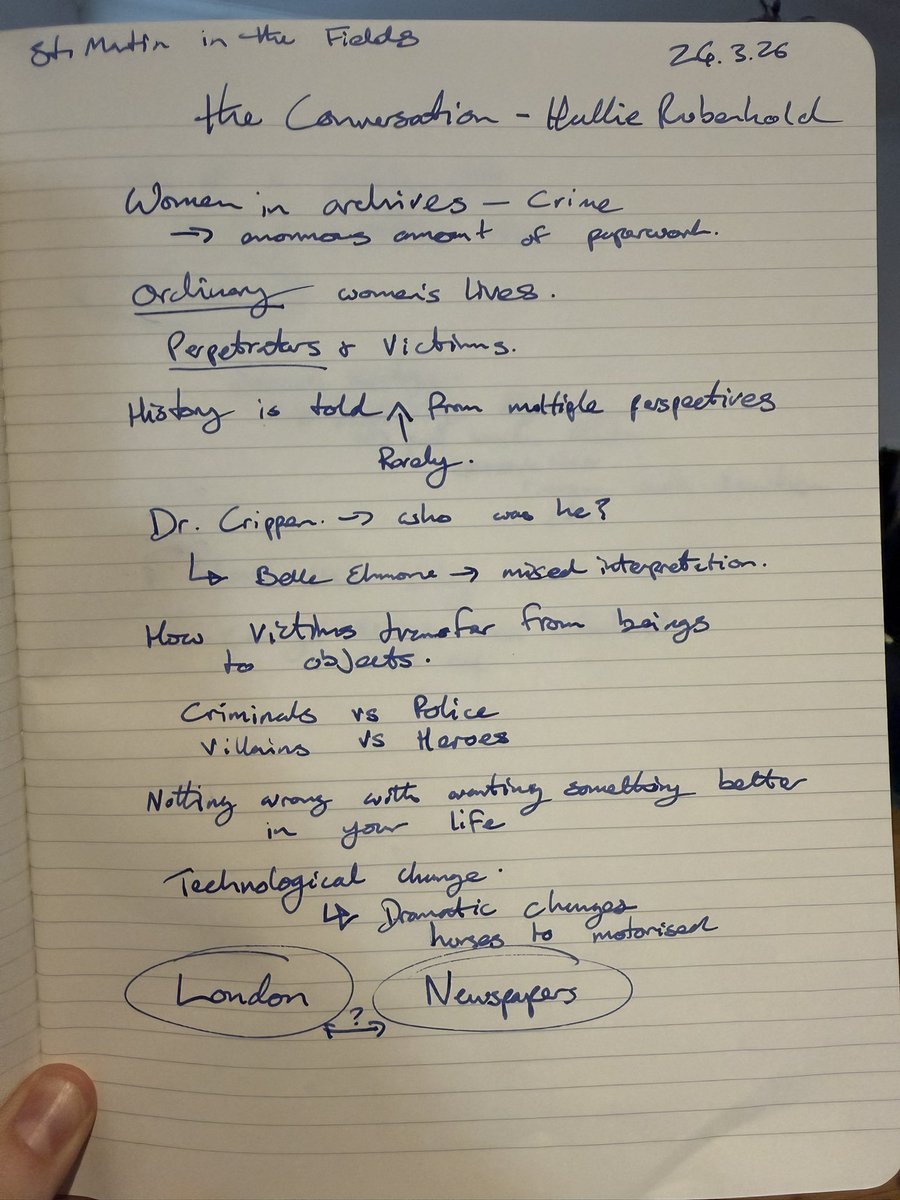 St. Martin in the Fields
26.3.26
the Conversation - Hallie Rubenhold
Women in archives - Crime
→ enormous amount of paperwork.
Ordinary women's lives.
Perpetrators & Victims.
History is told ^ from multiple perspectives
↑
Rarely.
Dr. Crippen. → who was he?
↳ Belle Elmore → mixed interpretation.
How victims transfer from beings
to objects.
Criminals vs Police
Villains vs Heroes
Nothing wrong with wanting something better
in your life
Technological change.
↳ Dramatic changes
horses to motorised
London ↔ Newspapers
?